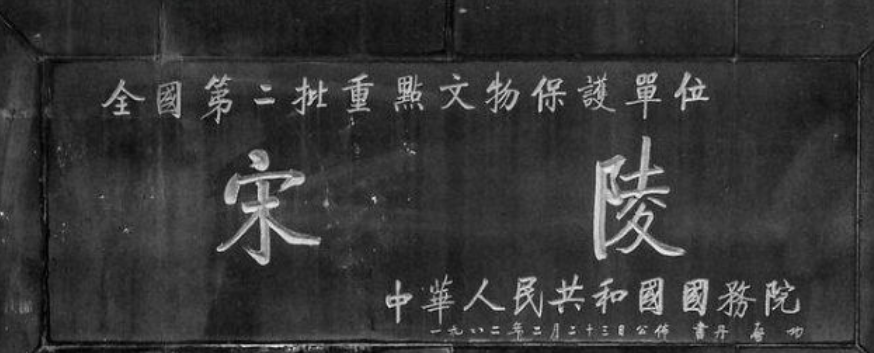 全國第二批重點文物保護單位
宋陵
中華人民共和國國務院
一九八二年二月二十三日公佈 書丹 啓功